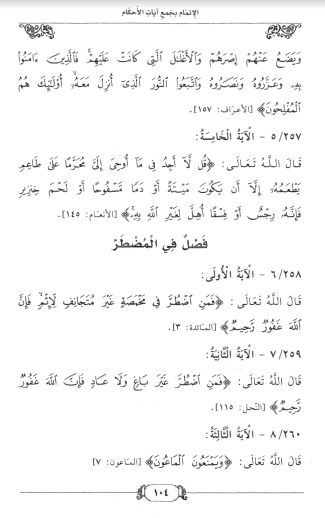 الإتمام بجمع آيات الأحكام
وَيَضَعُ عَنْهُمْ إِصْرَهُمْ وَالْأَغْلَالَ الَّتِي كَانَتْ عَلَيْهِمْ فَالَّذِينَ ءَامَنُوا
بِهِ وَعَزَّرُوهُ وَنَصَرُوهُ وَاتَّبَعُوا النُّورَ الَّذِي أُنزِلَ مَعَهُ أُولَٰئِكَ هُمُ
الْمُفْلِحُونَ﴾ [الأعراف: ١٥٧].
٥/٢٥٧ - الآيَةُ الْخَامِسَةُ:
قَالَ اللَّهُ تَعَالَى: ﴿قُل لَّا أَجِدُ فِي مَا أُوحِيَ إِلَيَّ مُحَرَّمًا عَلَى طَاعِمٍ
يَطْعَمُهُ إِلَّا أَن يَكُونَ مَيْتَةً أَوْ دَمًا مَّسْفُوحًا أَوْ لَحْمَ خِنزِيرٍ
فَإِنَّهُ رِجْسٌ أَوْ فِسْقًا أُهِلَّ لِغَيْرِ اللَّهِ بِهِ﴾ [الأنعام: ١٤٥].
فَصْلٌ فِي الْمُضْطَرِّ
٦/٢٥٨ - الآيَةُ الْأُولَى:
قَالَ اللَّهُ تَعَالَى: ﴿فَمَنِ اضْطُرَّ فِي مَخْمَصَةٍ غَيْرَ مُتَجَانِفٍ لِّإِثْمٍ فَإِنَّ
اللَّهَ غَفُورٌ رَّحِيمٌ﴾ [المائدة: ٣].
٧/٢٥٩ - الآيَةُ الثَّانِيَةُ:
قَالَ اللَّهُ تَعَالَى: ﴿فَمَنِ اضْطُرَّ غَيْرَ بَاغٍ وَلَا عَادٍ فَإِنَّ اللَّهَ غَفُورٌ
رَّحِيمٌ﴾ [النحل: ١١٥].
٨/٢٦٠ - الآيَةُ الثَّالِثَةُ:
قَالَ اللَّهُ تَعَالَى: ﴿وَيَمْنَعُونَ الْمَاعُونَ﴾ [الماعون: ٧]
١٠٤